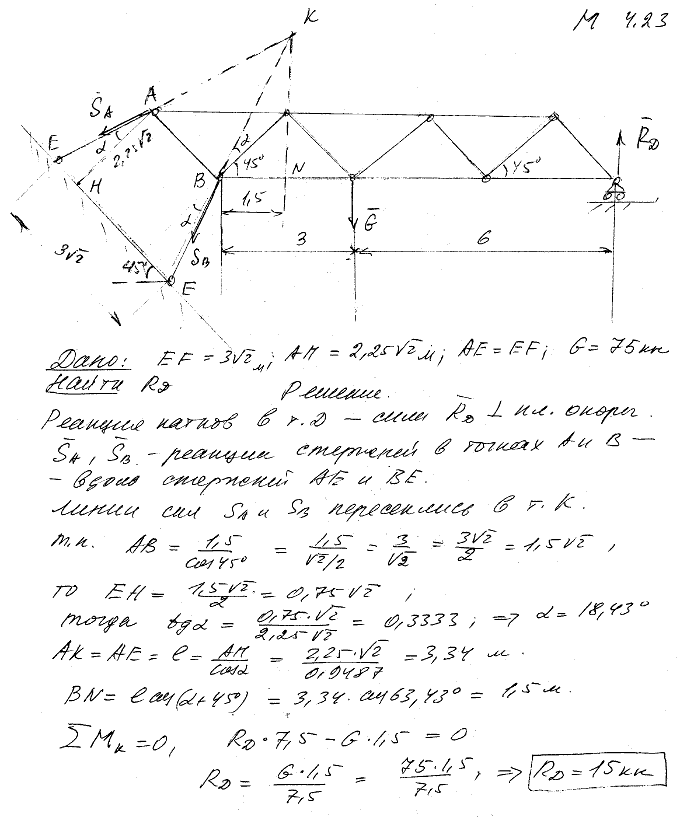 М 4.23
K
S̄A A
E α 2,25√2
H
B 45° α N 45° R̄D
1,5
α Ḡ
3√2 SB 3 6
45° E
Дано: EF = 3√2 м; AH = 2,25√2 м; AE = EF; G = 75 кн
Найти RD Решение.
Реакция катков в т. D — сила R̄D ⊥ пл. опоры.
S̄A, S̄B - реакции стержней в точках A и B —
- вдоль стержней AE и BE.
Линии сил SA и SB пересеклись в т. K.
т.к. AB = 1,5/cos45° = 1,5/(√2/2) = 3/√2 = 3√2/2 = 1,5√2,
то EH = 1,5√2/2 = 0,75√2;
тогда tgα = 0,75·√2/2,25√2 = 0,3333; => α = 18,43°
AK = AE = l = AH/cosα = 2,25·√2/0,9487 = 3,34 м.
BN = l cos(α+45°) = 3,34·cos63,43° = 1,5 м.
ΣMK = 0, RD·7,5 − G·1,5 = 0
RD = G·1,5/7,5 = 75·1,5/7,5; => RD = 15 кн